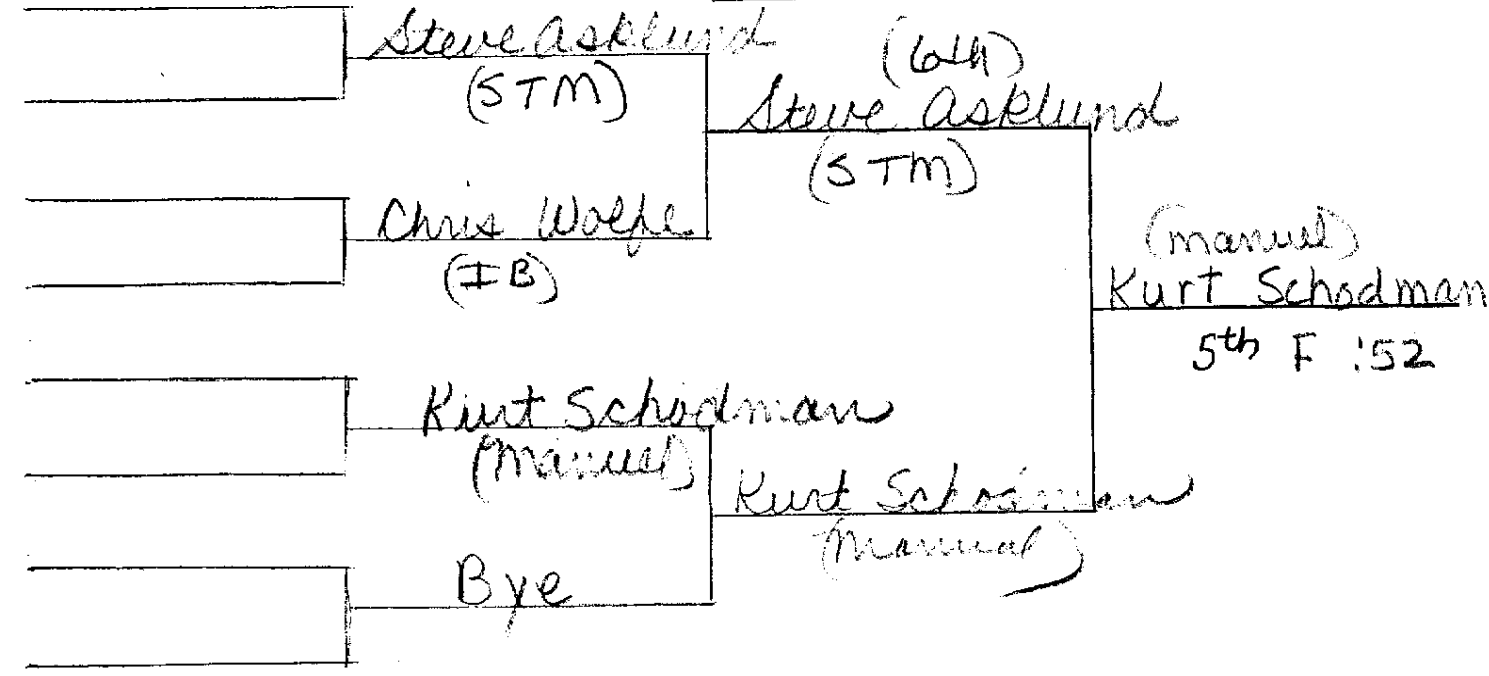 Steve Asklund
(STM)
Chris Wolfe
(IB)
Kurt Schodman
(Manuel)
Bye
(6th)
Steve Asklund
(STM)
Kurt Schodman
(Manual)
(manuel)
Kurt Schodman
5th F :52